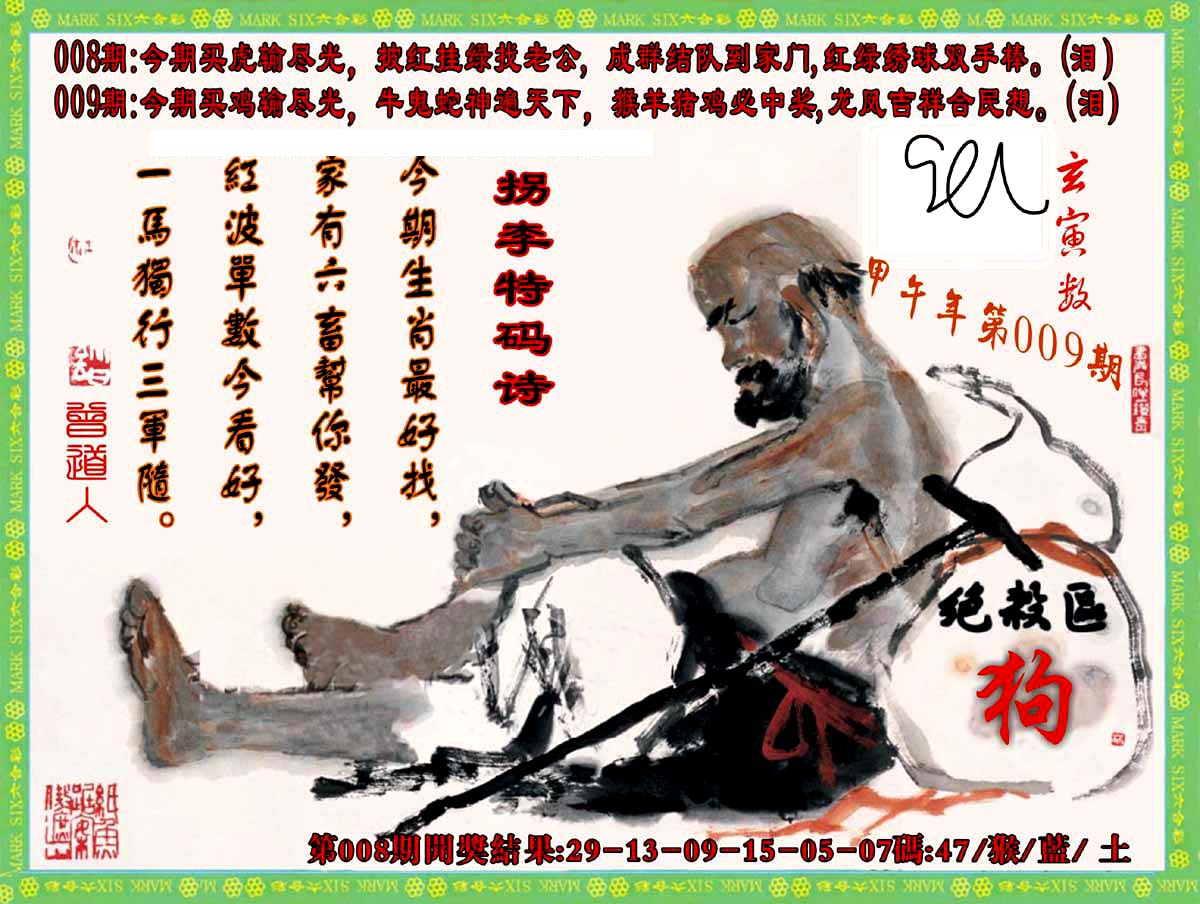 MARK SIX六合彩
008期:今期买虎输尽光，披红挂绿找老公，成群结队到家门,红绿绣球双手棒。(泪)
009期:今期买鸡输尽光，牛鬼蛇神遍天下，猴羊猪鸡必中奖,龙凤吉祥合民想。(泪)
玄寅数
甲午年第009期
拐李特码诗
今期生肖最好找，
家有六畜幫你發，
紅波單數今看好，
一馬獨行三軍隨。
曾道人
绝殺区
狗
第008期開獎結果:29-13-09-15-05-07碼:47/猴/藍/土